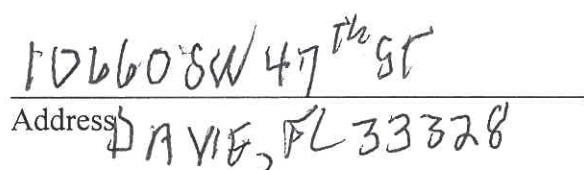 10660 SW 47th St
Address DAVIE, FL 33328